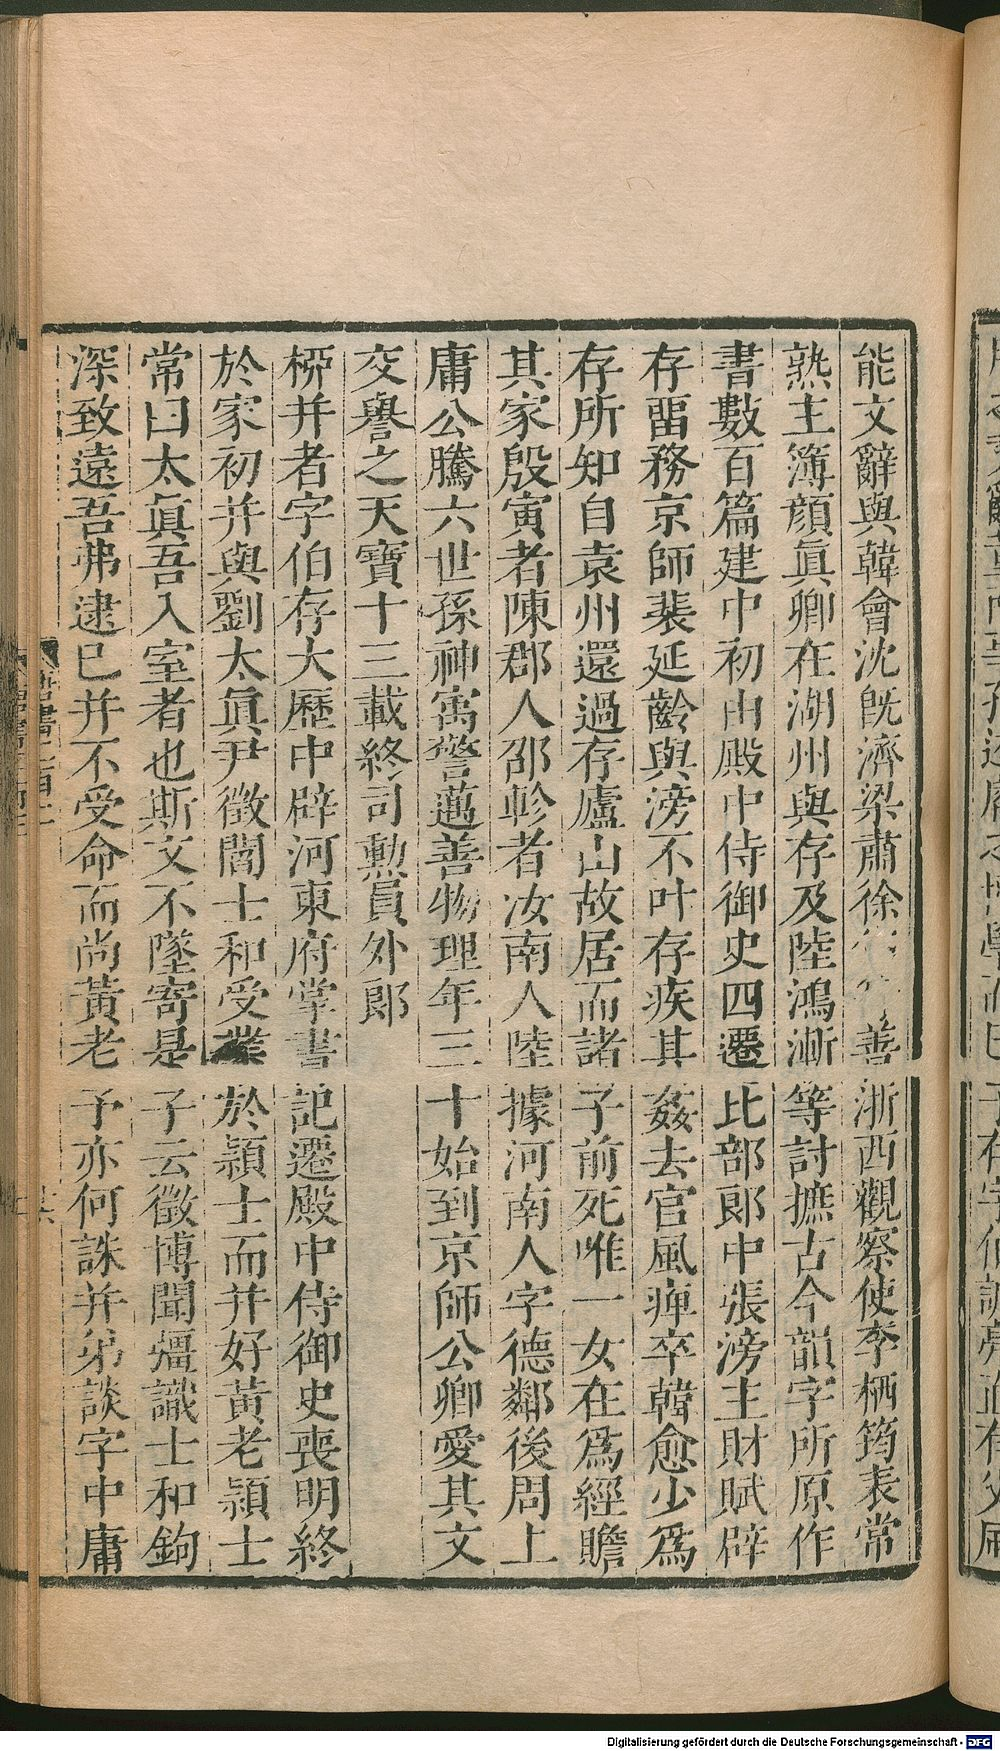 能文辭與韓會沈旣濟梁肅徐善浙西觀察使李栖筠表常
熟主簿顔眞卿在湖州與存及陸鴻漸等討摭古今韻字所原作
書數百篇建中初由殿中侍御史四遷比部郎中張滂主財賦辟
存畱務京師裴延齡與滂不叶存疾其姦去官風痺卒韓愈少爲
存所知自袁州還過存廬山故居而諸子前死唯一女在爲經贍
其家殷寅者陳郡人邵軫者汝南人陸據河南人字德鄰後周上
庸公騰六世孫神㝢警邁善物理年三十始到京師公卿愛其文
交譽之天寶十三載終司勳員外郎
桺并者字伯存大歷中辟河東府掌書記遷殿中侍御史喪明終
於家初并與劉太眞尹徵閻士和受業於穎士而并好黃老穎士
常曰太眞吾入室者也斯文不墜寄是子云徵博聞彊識士和鉤
深致遠吾弗逮已并不受命而尚黃老予亦何誅并弟談字中庸
Digitalisierung gefördert durch die Deutsche Forschungsgemeinschaft - DFG